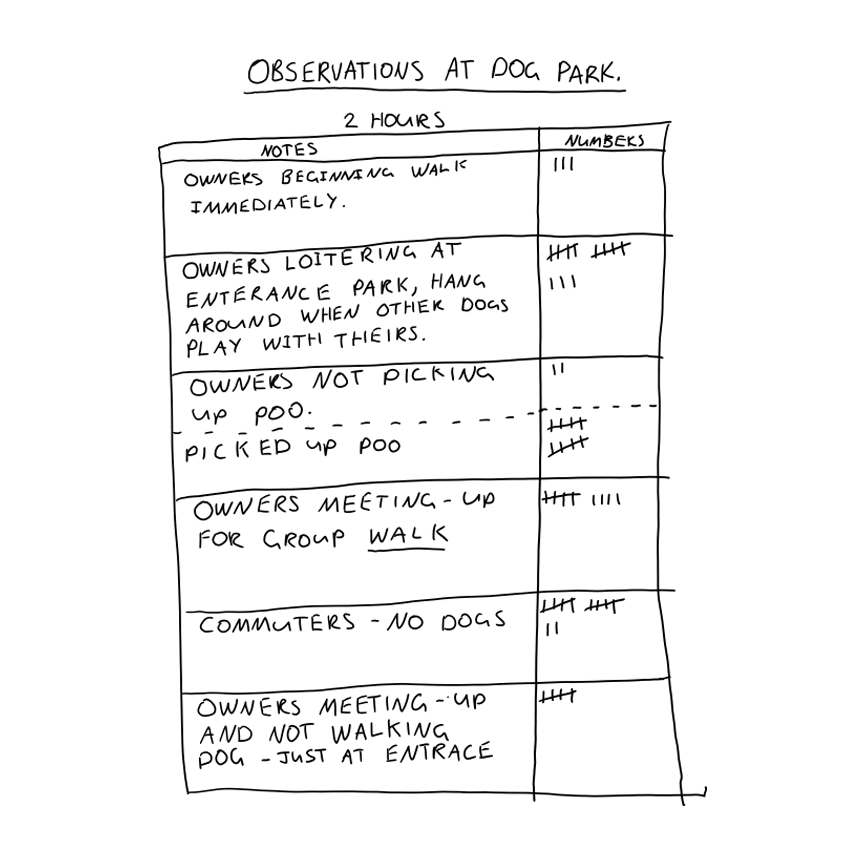 OBSERVATIONS AT DOG PARK.
2 HOURS
NOTES
NUMBERS
OWNERS BEGINNING WALK
IMMEDIATELY.
OWNERS LOITERING AT
ENTERANCE PARK, HANG
AROUND WHEN OTHER DOGS
PLAY WITH THEIRS.
OWNERS NOT PICKING
UP POO.
PICKED UP POO
OWNERS MEETING-UP
FOR GROUP WALK
COMMUTERS - NO DOGS
OWNERS MEETING-UP
AND NOT WALKING
DOG - JUST AT ENTRACE